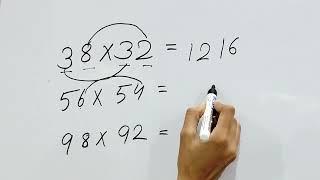 38 × 32 = 1216
56 × 54 =
98 × 92 =